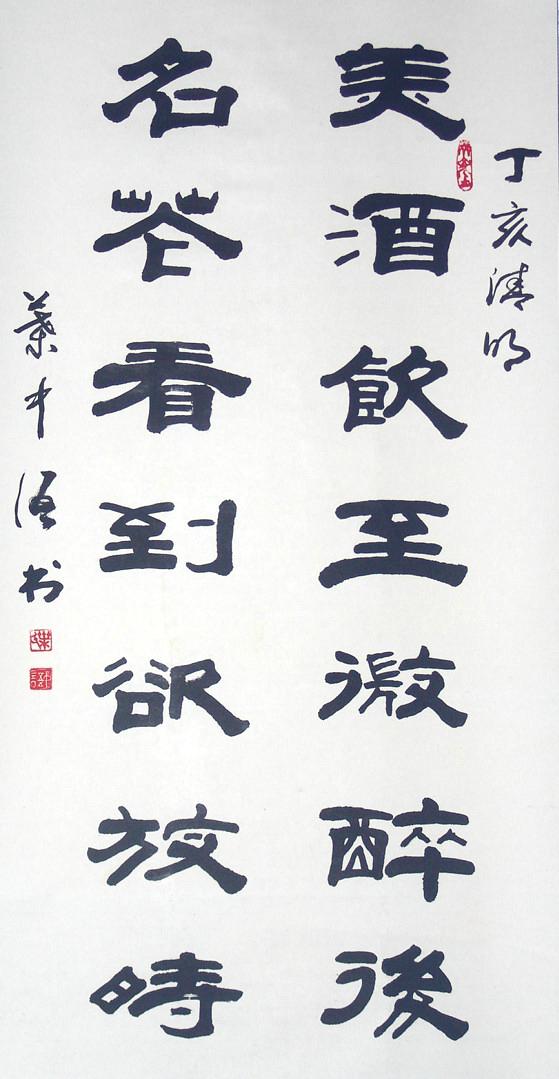 丁亥清明
美酒飲至微醉後
名花看到欲放時
葉中书